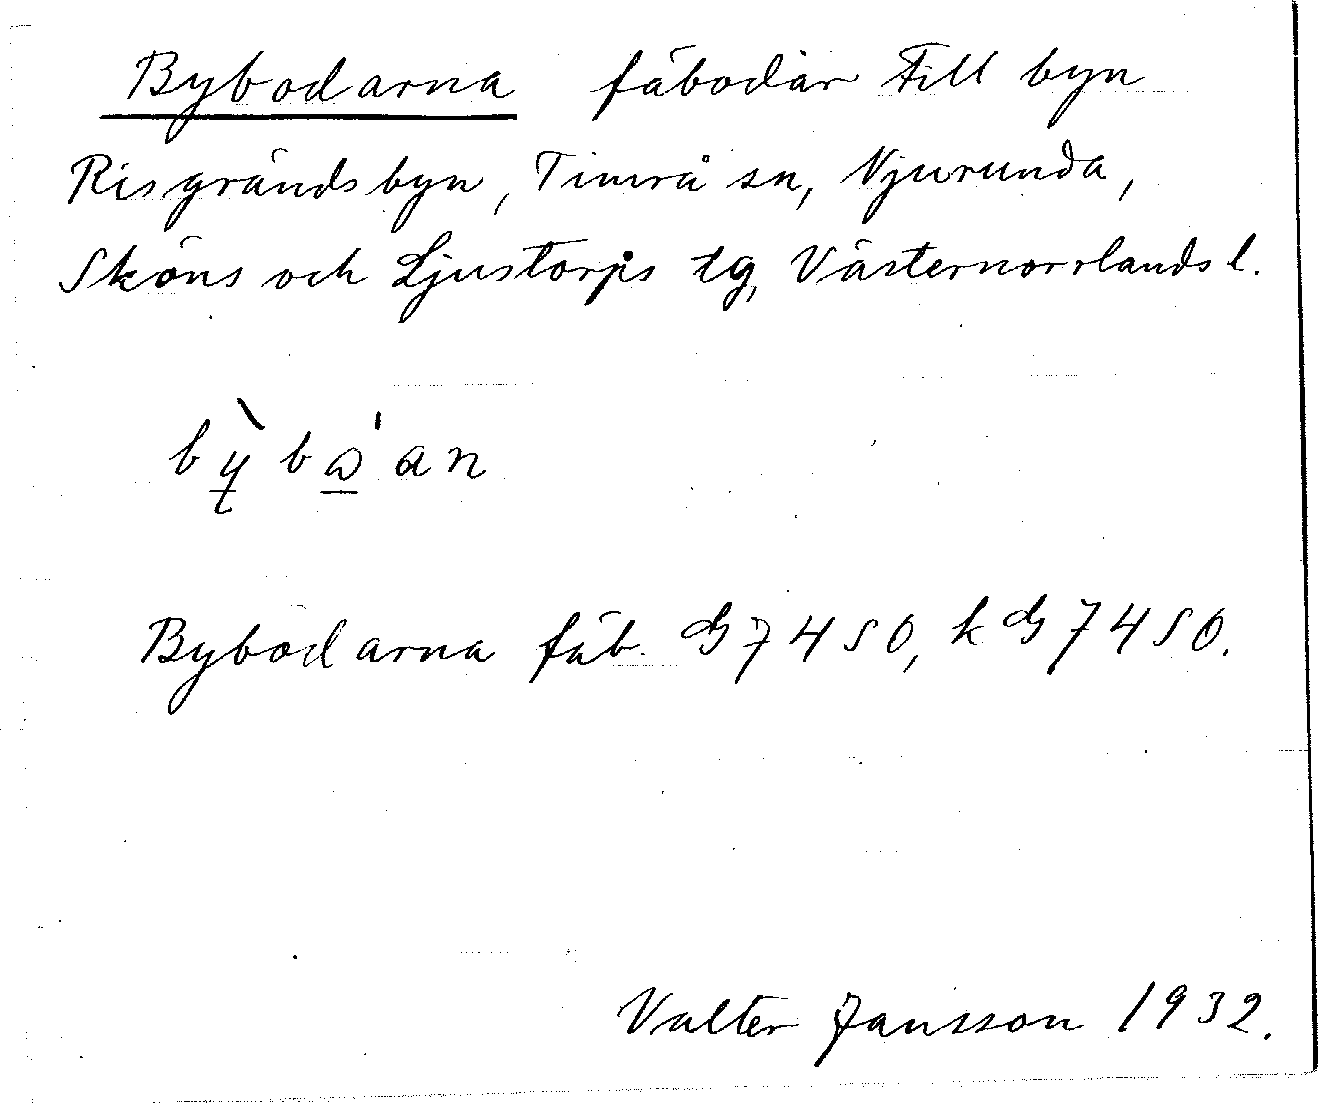 Bybodarna fäbodar till byn
Risgrändsbyn, Timrå sn, Njurunda,
Sköns och Ljustorps tg, Västernorrlands l.
Bybodarna fäb. G 7450, k G 7450.
Valter Jansson 1932.